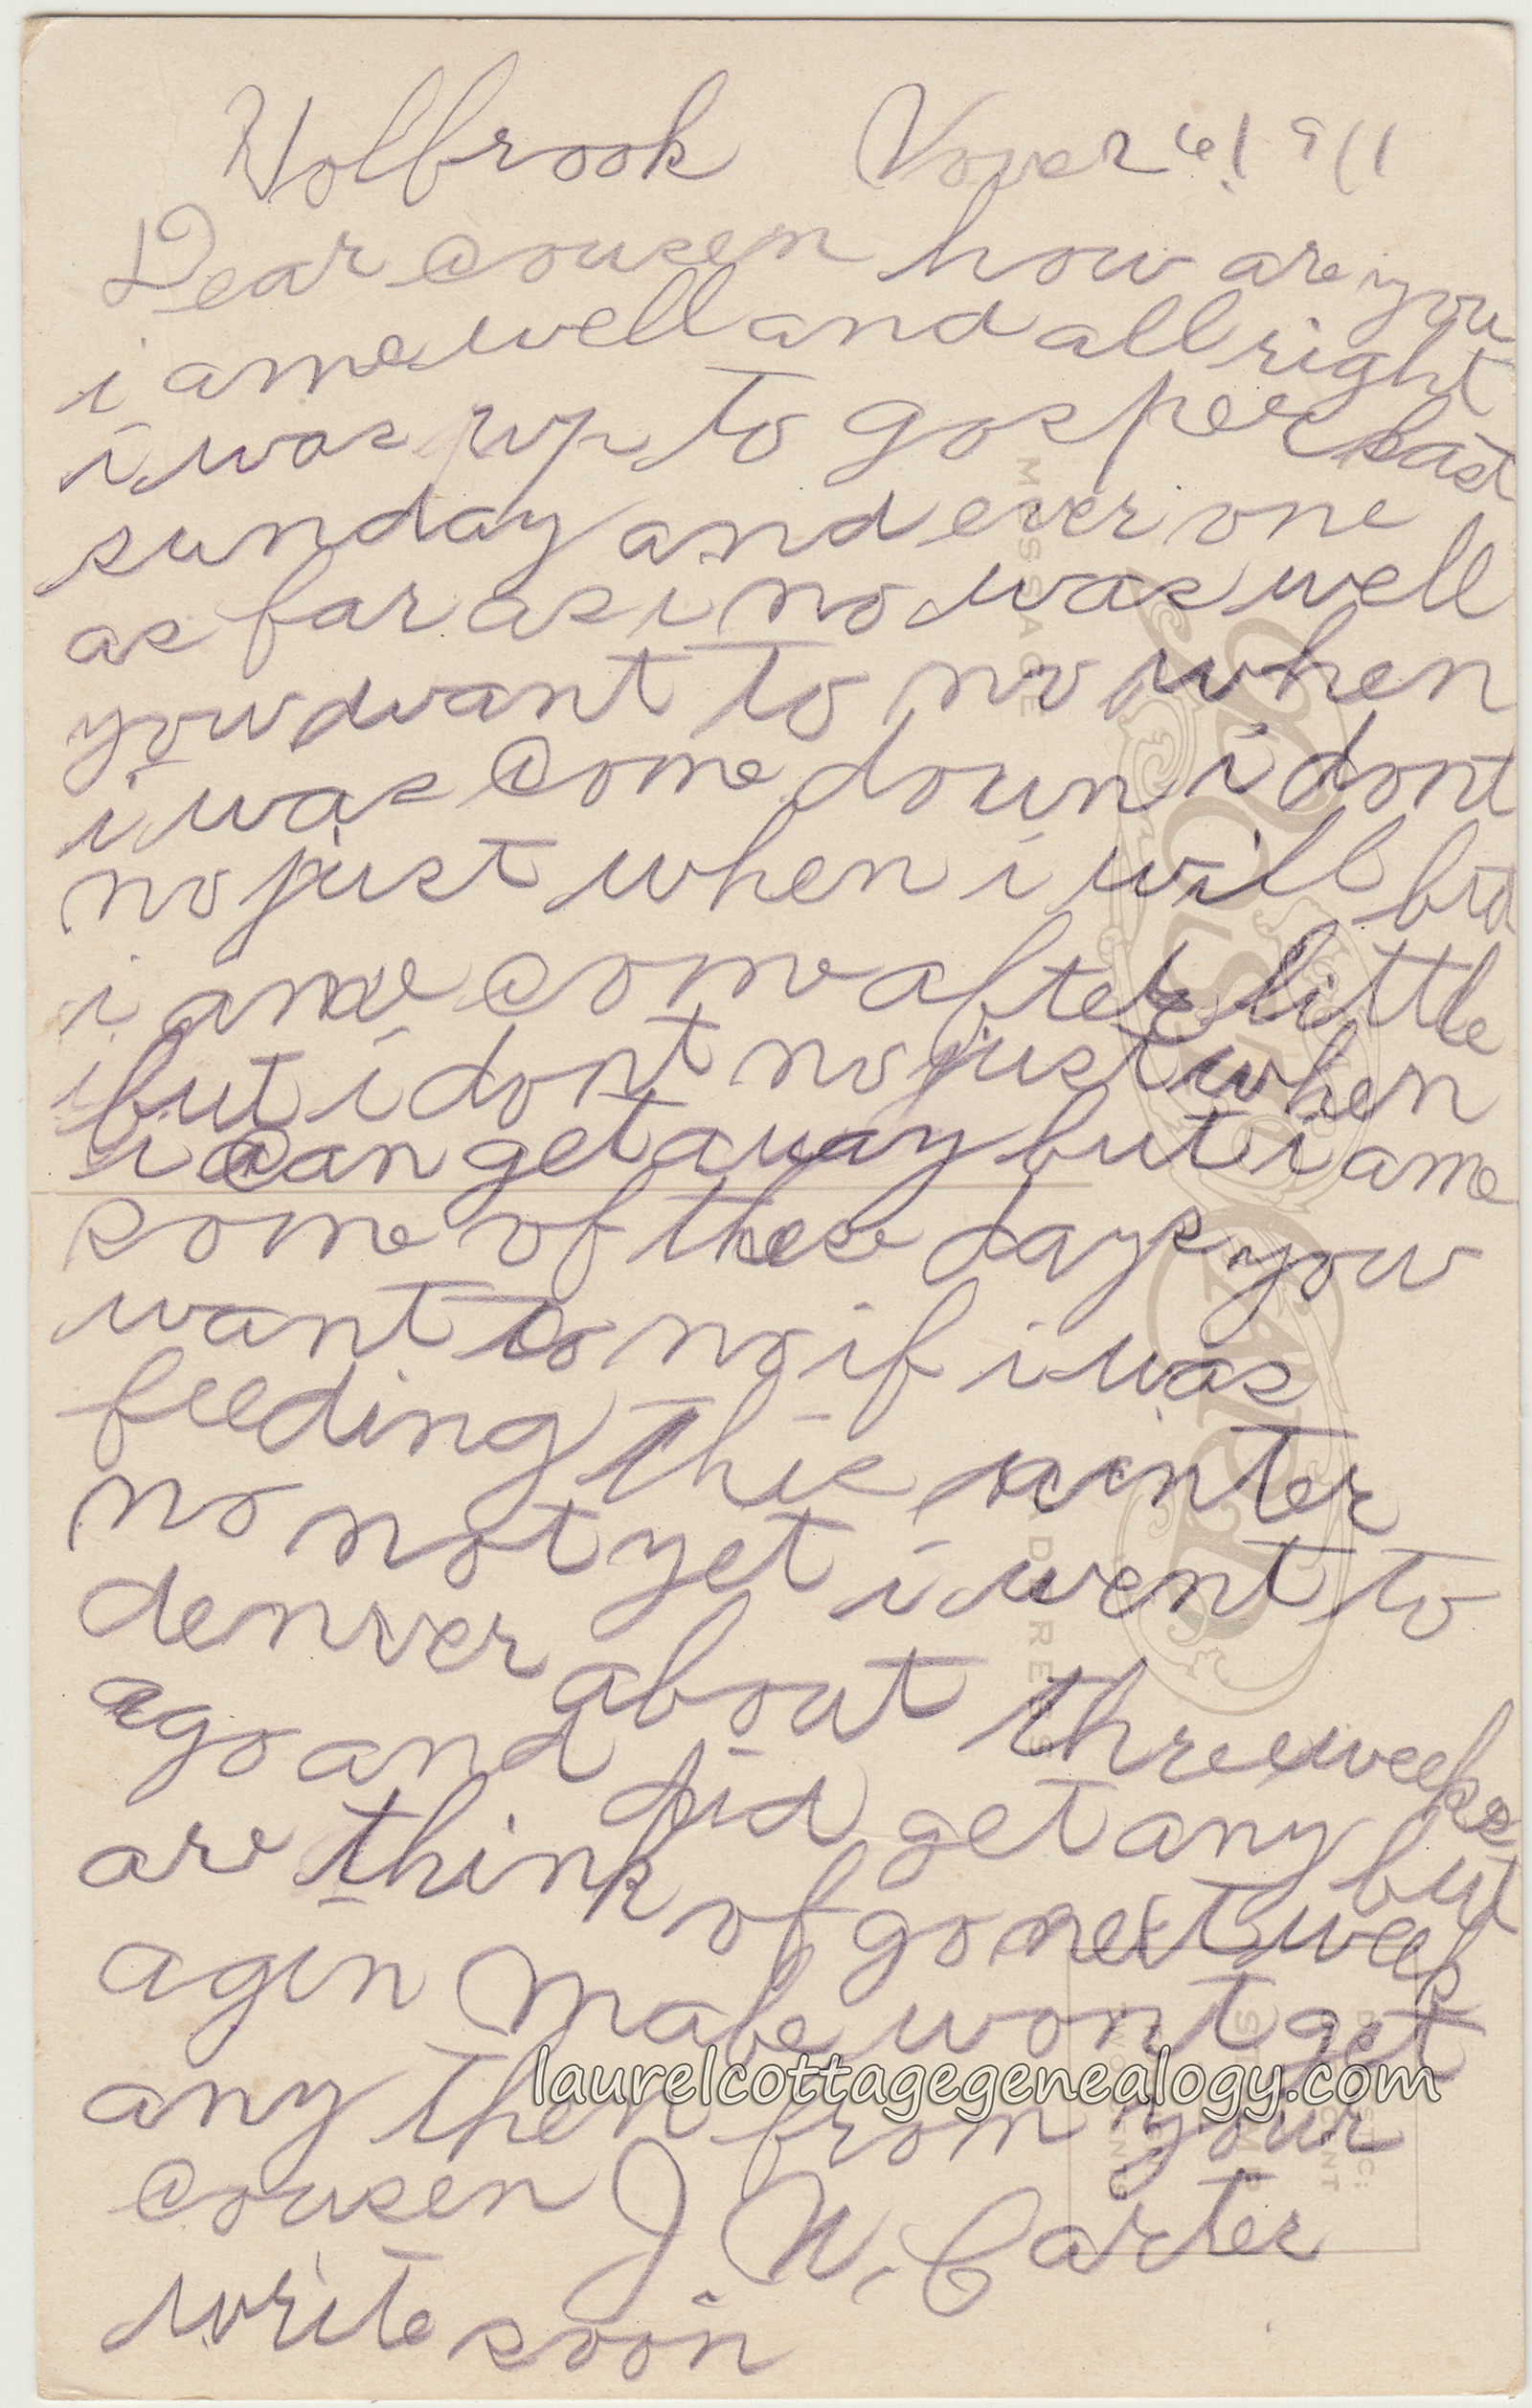 Holbrook Nover 26 1911
Dear cousen how are you
i ame well and all right
i was up to gosper last
sunday and ever one
as far as i no was well
you want to no when
i was come down i dont
no just when i will but
i ame come after little
but i dont no just when
i can get away but i ame
some of these days you
want to no if i was
feeding this winter
no not yet i went to
denver about three weeks
ago and did get any but
are think of go next week
agin Mabe wont get
any then from your
cousen J W. Carter
write soon
MESSAGE
POST CARD
ADDRESS
laurelcottagegenealogy.com